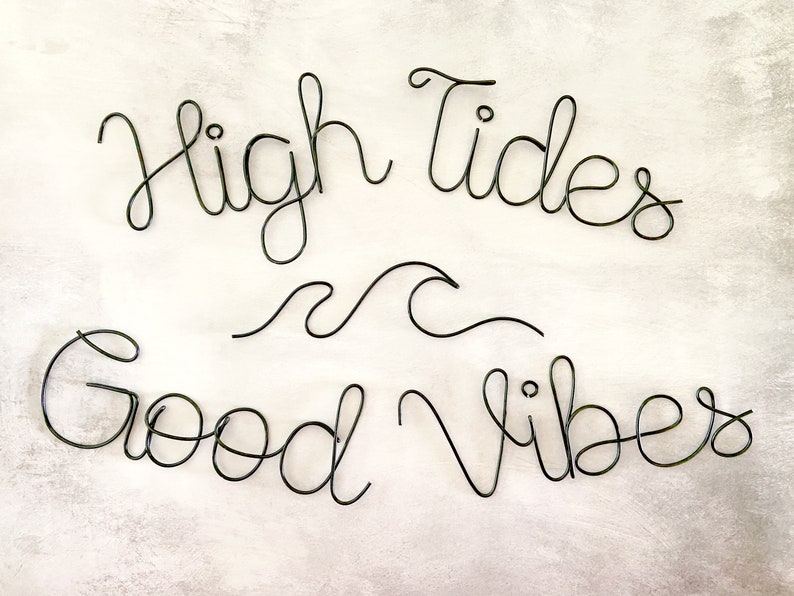 High Tides
Good Vibes